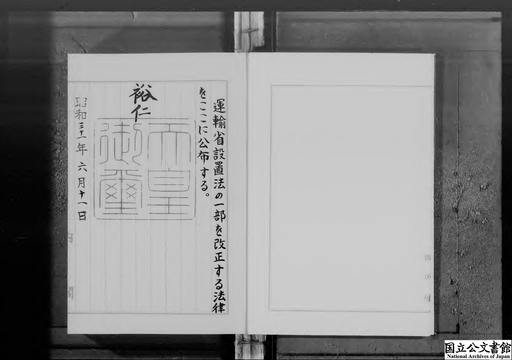 運輸省設置法の一部を改正する法律
をここに公布する。
裕仁
天皇
御璽
昭和三十一年六月十一日
国立公文書館
National Archives of Japan